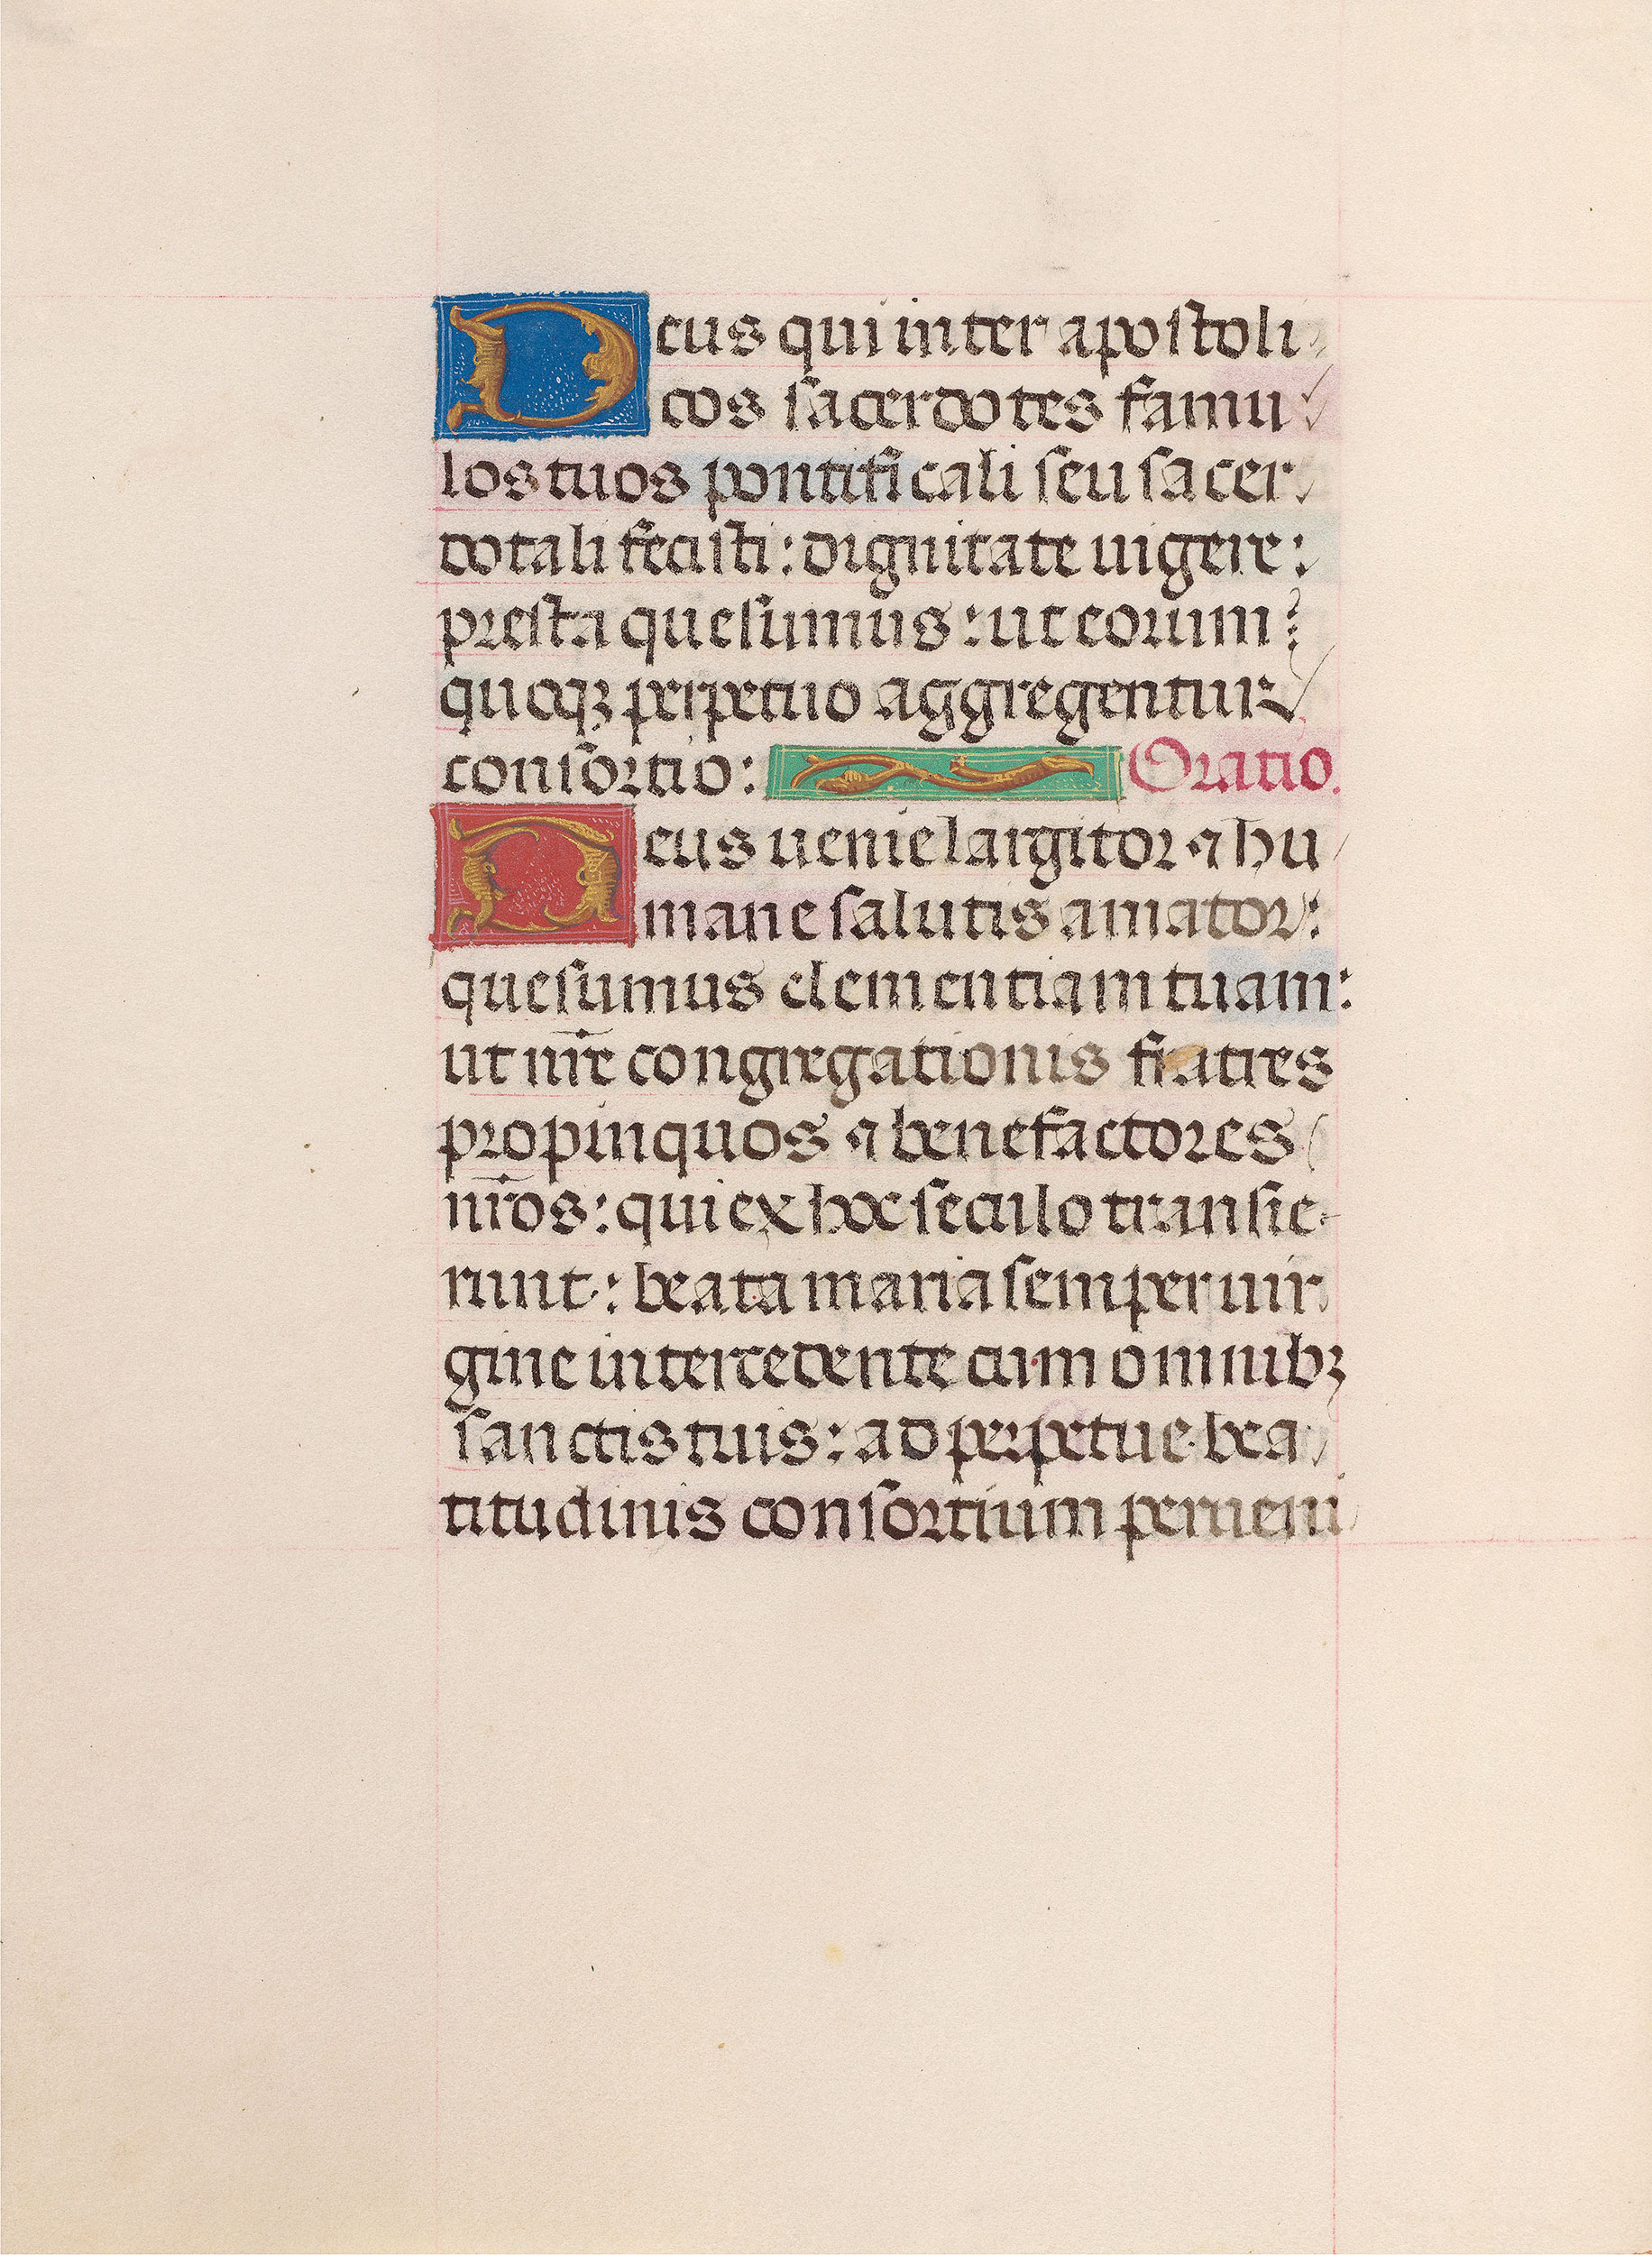 Deus qui inter apostoli
cos sacerdotes famu
los tuos pontificali seu sacer
dotali fecisti: dignitate uigere:
presta quesumus: ut eorum
quoqꝫ perpetuo aggregentur
consortio: Oratio.
Deus uenie largitor ⁊ hu
mane salutis amator:
quesumus clementiam tuam:
ut nr̄e congregationis fratres
propinquos ⁊ benefactores
nr̄os: qui ex hoc seculo transie
runt: beata maria semper uir
gine intercedente cum omnibꝫ
sanctis tuis: ad perpetue bea
titudinis consortium perueni